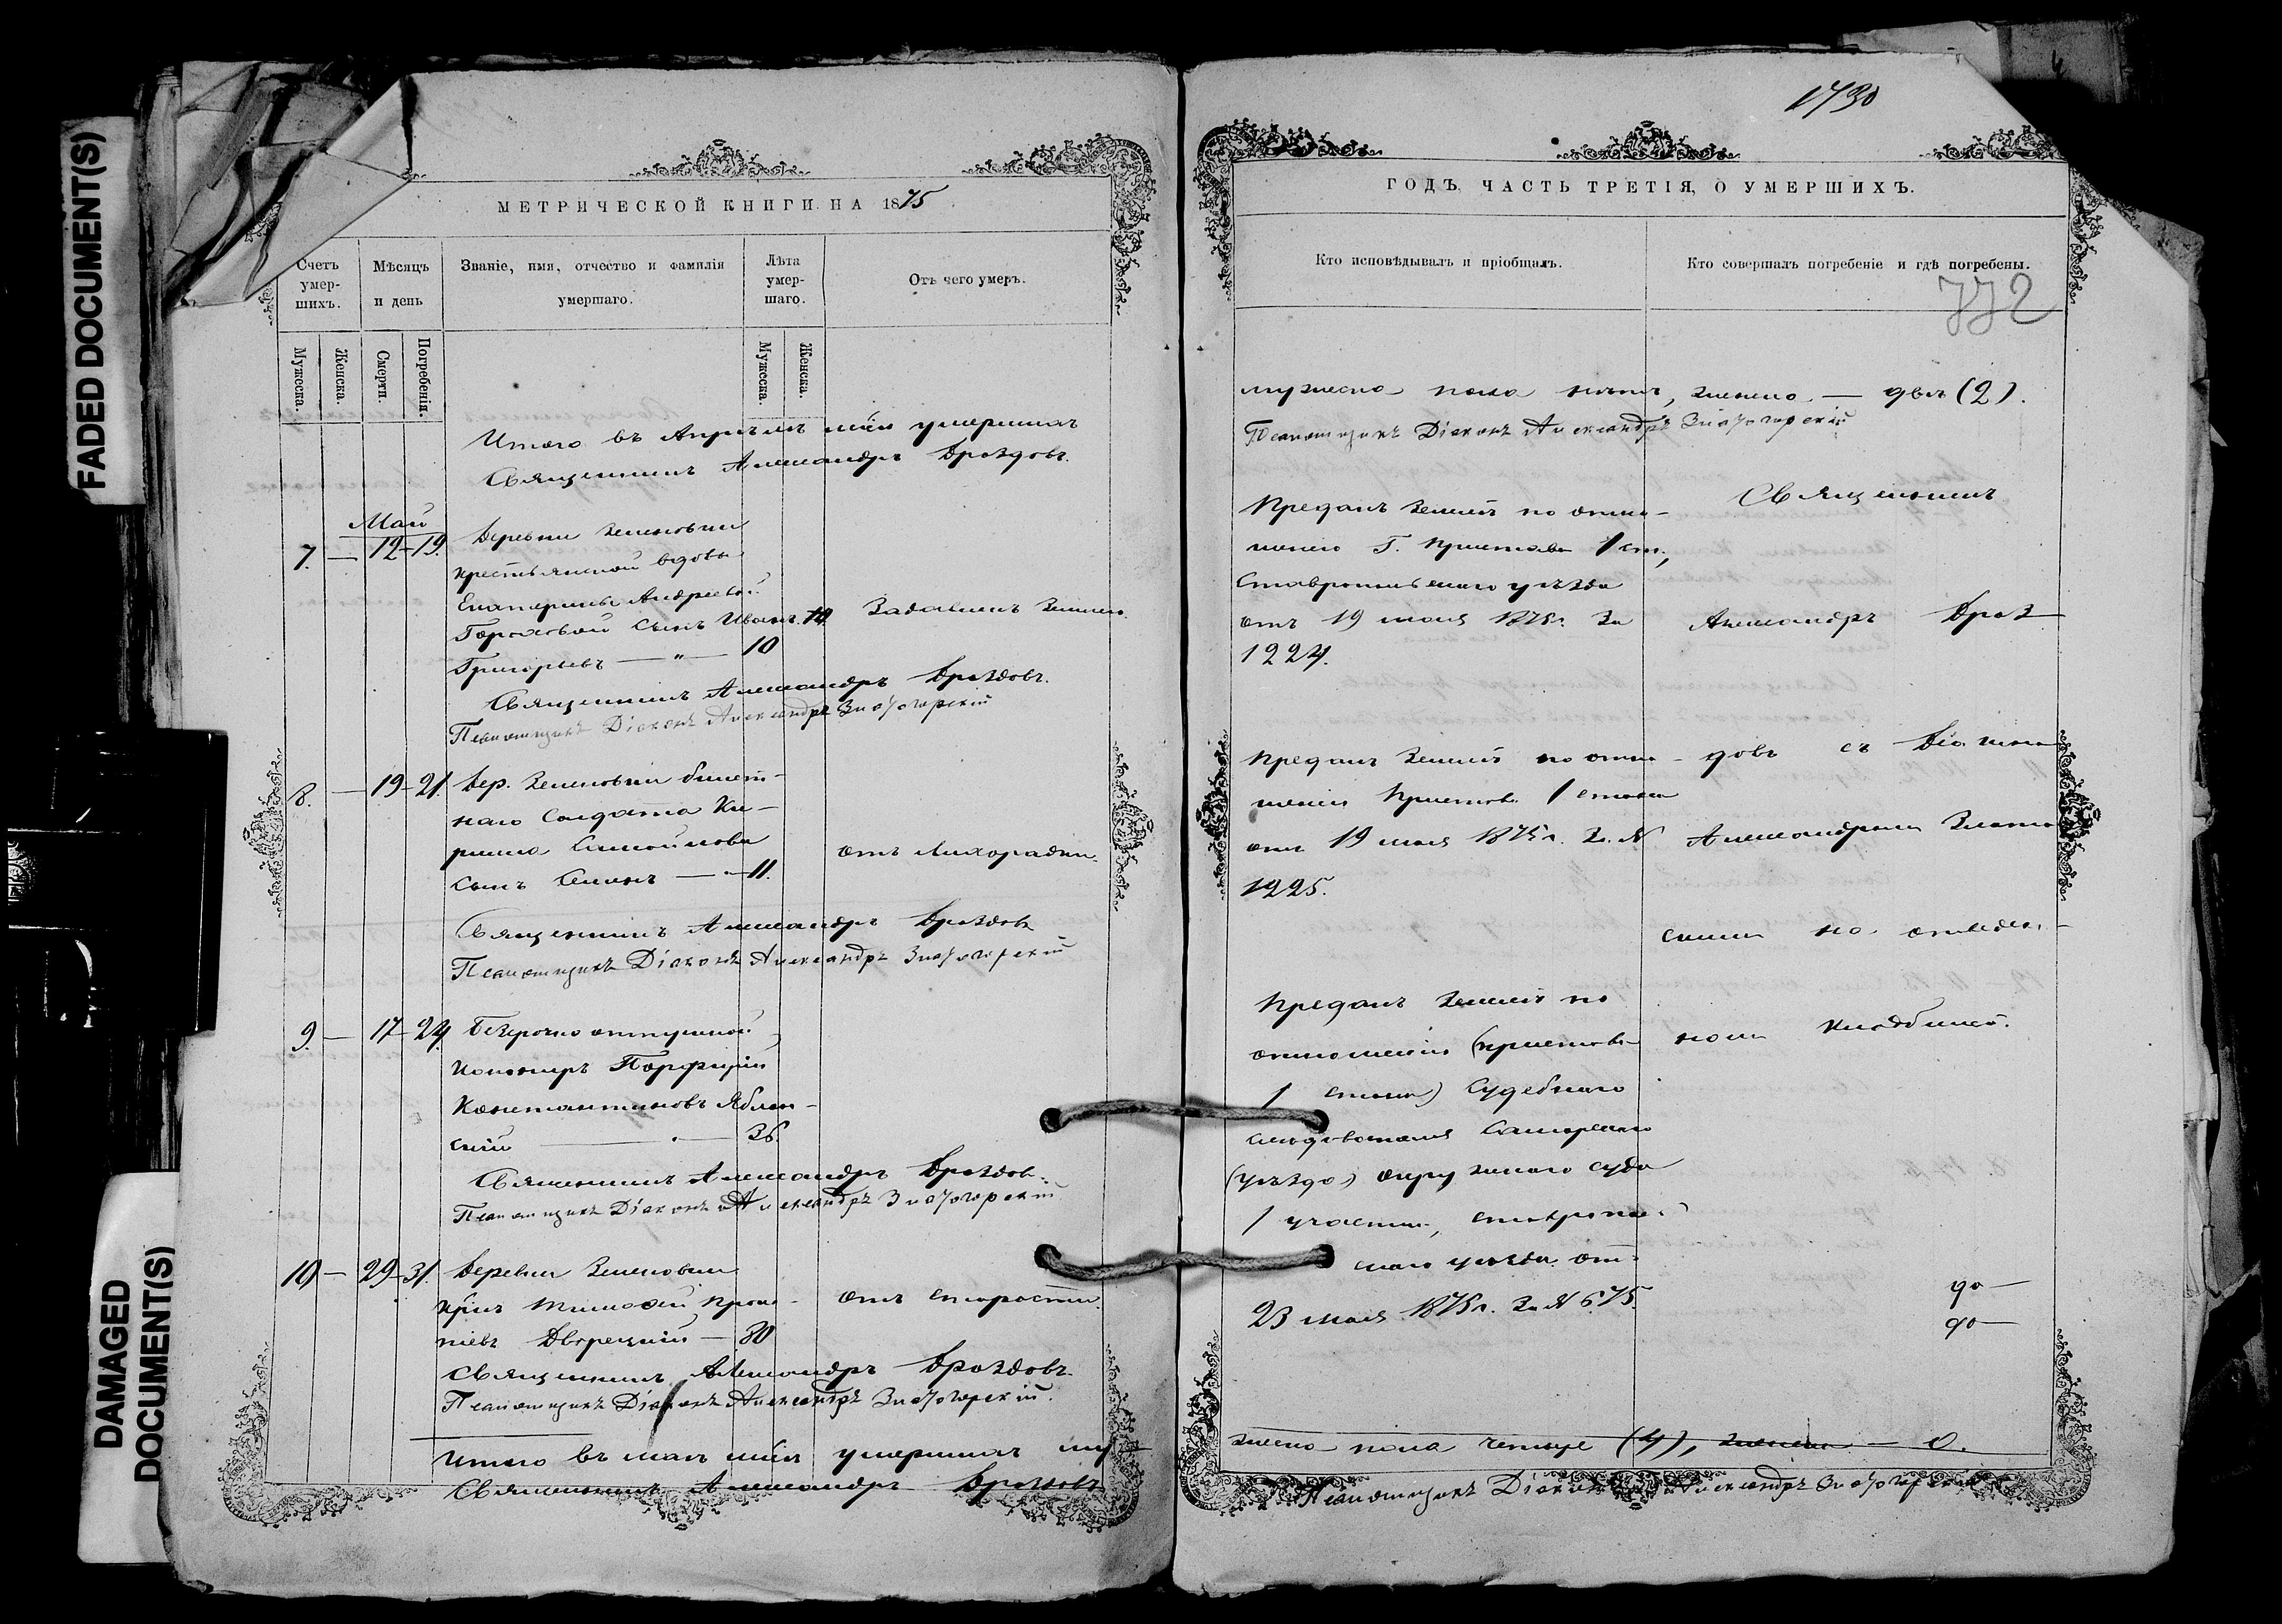 FADED DOCUMENT(S)
DAMAGED
DOCUMENT(S)
МЕТРИЧЕСКОЙ КНИГИ НА 1875
Счетъ
умер-
шихъ.
Мѣсяцъ
и день
Званіе, имя, отчество и фамилія
умершаго.
Лѣта
умер-
шаго.
Отъ чего умеръ.
Мужеска.
Женска.
Смерти.
Погребенія.
Мужеска.
Женска.
Итого въ Апрѣлѣ умершихъ
Священникъ Александръ Дроздовъ.
Май
7. — 12-19. Деревни Зеленовки
крестьянской вдовы
Екатерины Андреевой
Гороховой сынъ Иванъ Задавленъ землею.
Григорьевъ — " — 10
Священникъ Александръ Дроздовъ.
Псаломщикъ Діаконъ Александръ Златогорскій
8. — 19-21. Дер. Зеленовки билет-
наго солдата Ки-
рила Самойлова
отъ лихорадки.
сынъ Семенъ — 11.
Священникъ Александръ Дроздовъ
Псаломщикъ Діаконъ Александръ Златогорскій
9. — 17-24. Безсрочно отпускной
Порфирій
Константиновъ Яблон-
скій — 36.
Священникъ Александръ Дроздовъ.
Псаломщикъ Діаконъ Александръ Златогорскій
10 — 29-31. Деревни Зеленовки
Тимофей Прокo- отъ старости.
піевъ Дворецкій — 80
Священникъ Александръ Дроздовъ
Псаломщикъ Діаконъ Александръ Златогорскій.
Итого въ маѣ умершихъ му-
Священникъ Александръ Дроздовъ
1730
ГОДЪ, ЧАСТЬ ТРЕТІЯ, О УМЕРШИХЪ.
Кто исповѣдывалъ и пріобщалъ.
Кто совершалъ погребеніе и гдѣ погребены.
772
мужеска пола женска — два (2).
Псаломщикъ Діаконъ Александръ Златогорскій
Преданъ землѣ по отно-
шенію Г. Пристава 1 ст.,
Ставропольскаго уѣзда
отъ 19 мая 1875 г. За
1224.
Преданъ землѣ по отно-
шенію Пристава 1 стана
отъ 19 мая 1875 г. За №
1225.
Преданъ землѣ по
отношенію (пристава
1 стана) Судебнаго
слѣдователя Самарскаго
(уѣзда) окружнаго суда
1 участка, Ставрополь-
скаго уѣзда отъ
23 мая 1875 г. За № 675.
Священникъ
Александръ Дроз-
довъ съ Діакономъ
Александромъ Злато-
горскимъ на отведен-
номъ кладбищѣ.
жеска пола четыре (4), женска — 0.
Псаломщикъ Діаконъ Александръ Златогорскій